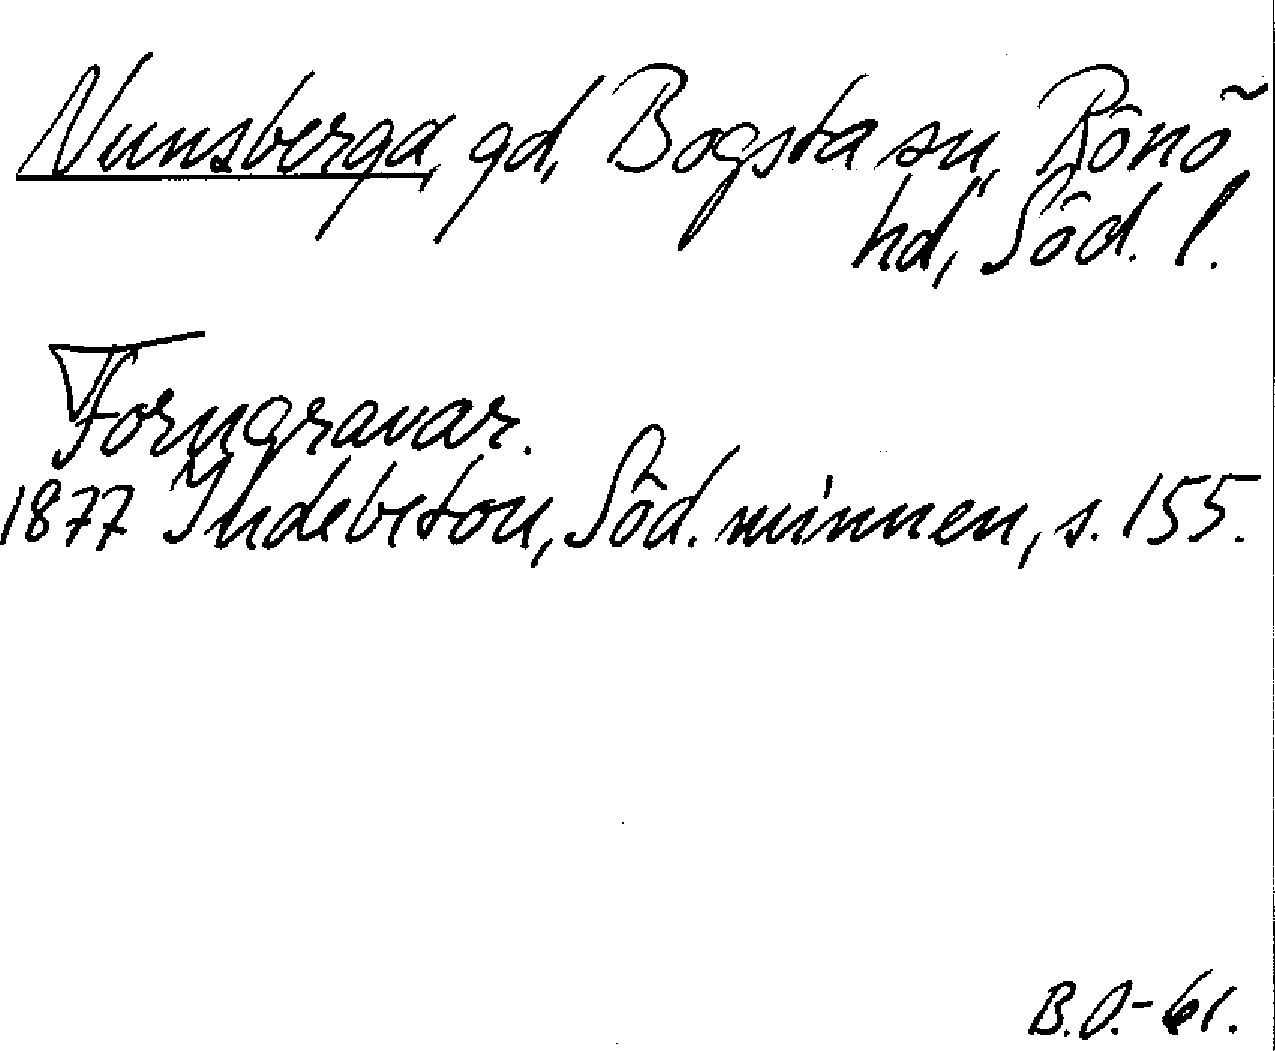 Nunsberga, gd, Bogsta sn, Rönö
hd, Söd. l.
Forngravar.
1877 Indebetou, Söd. minnen, s. 155.
B.O.-61.